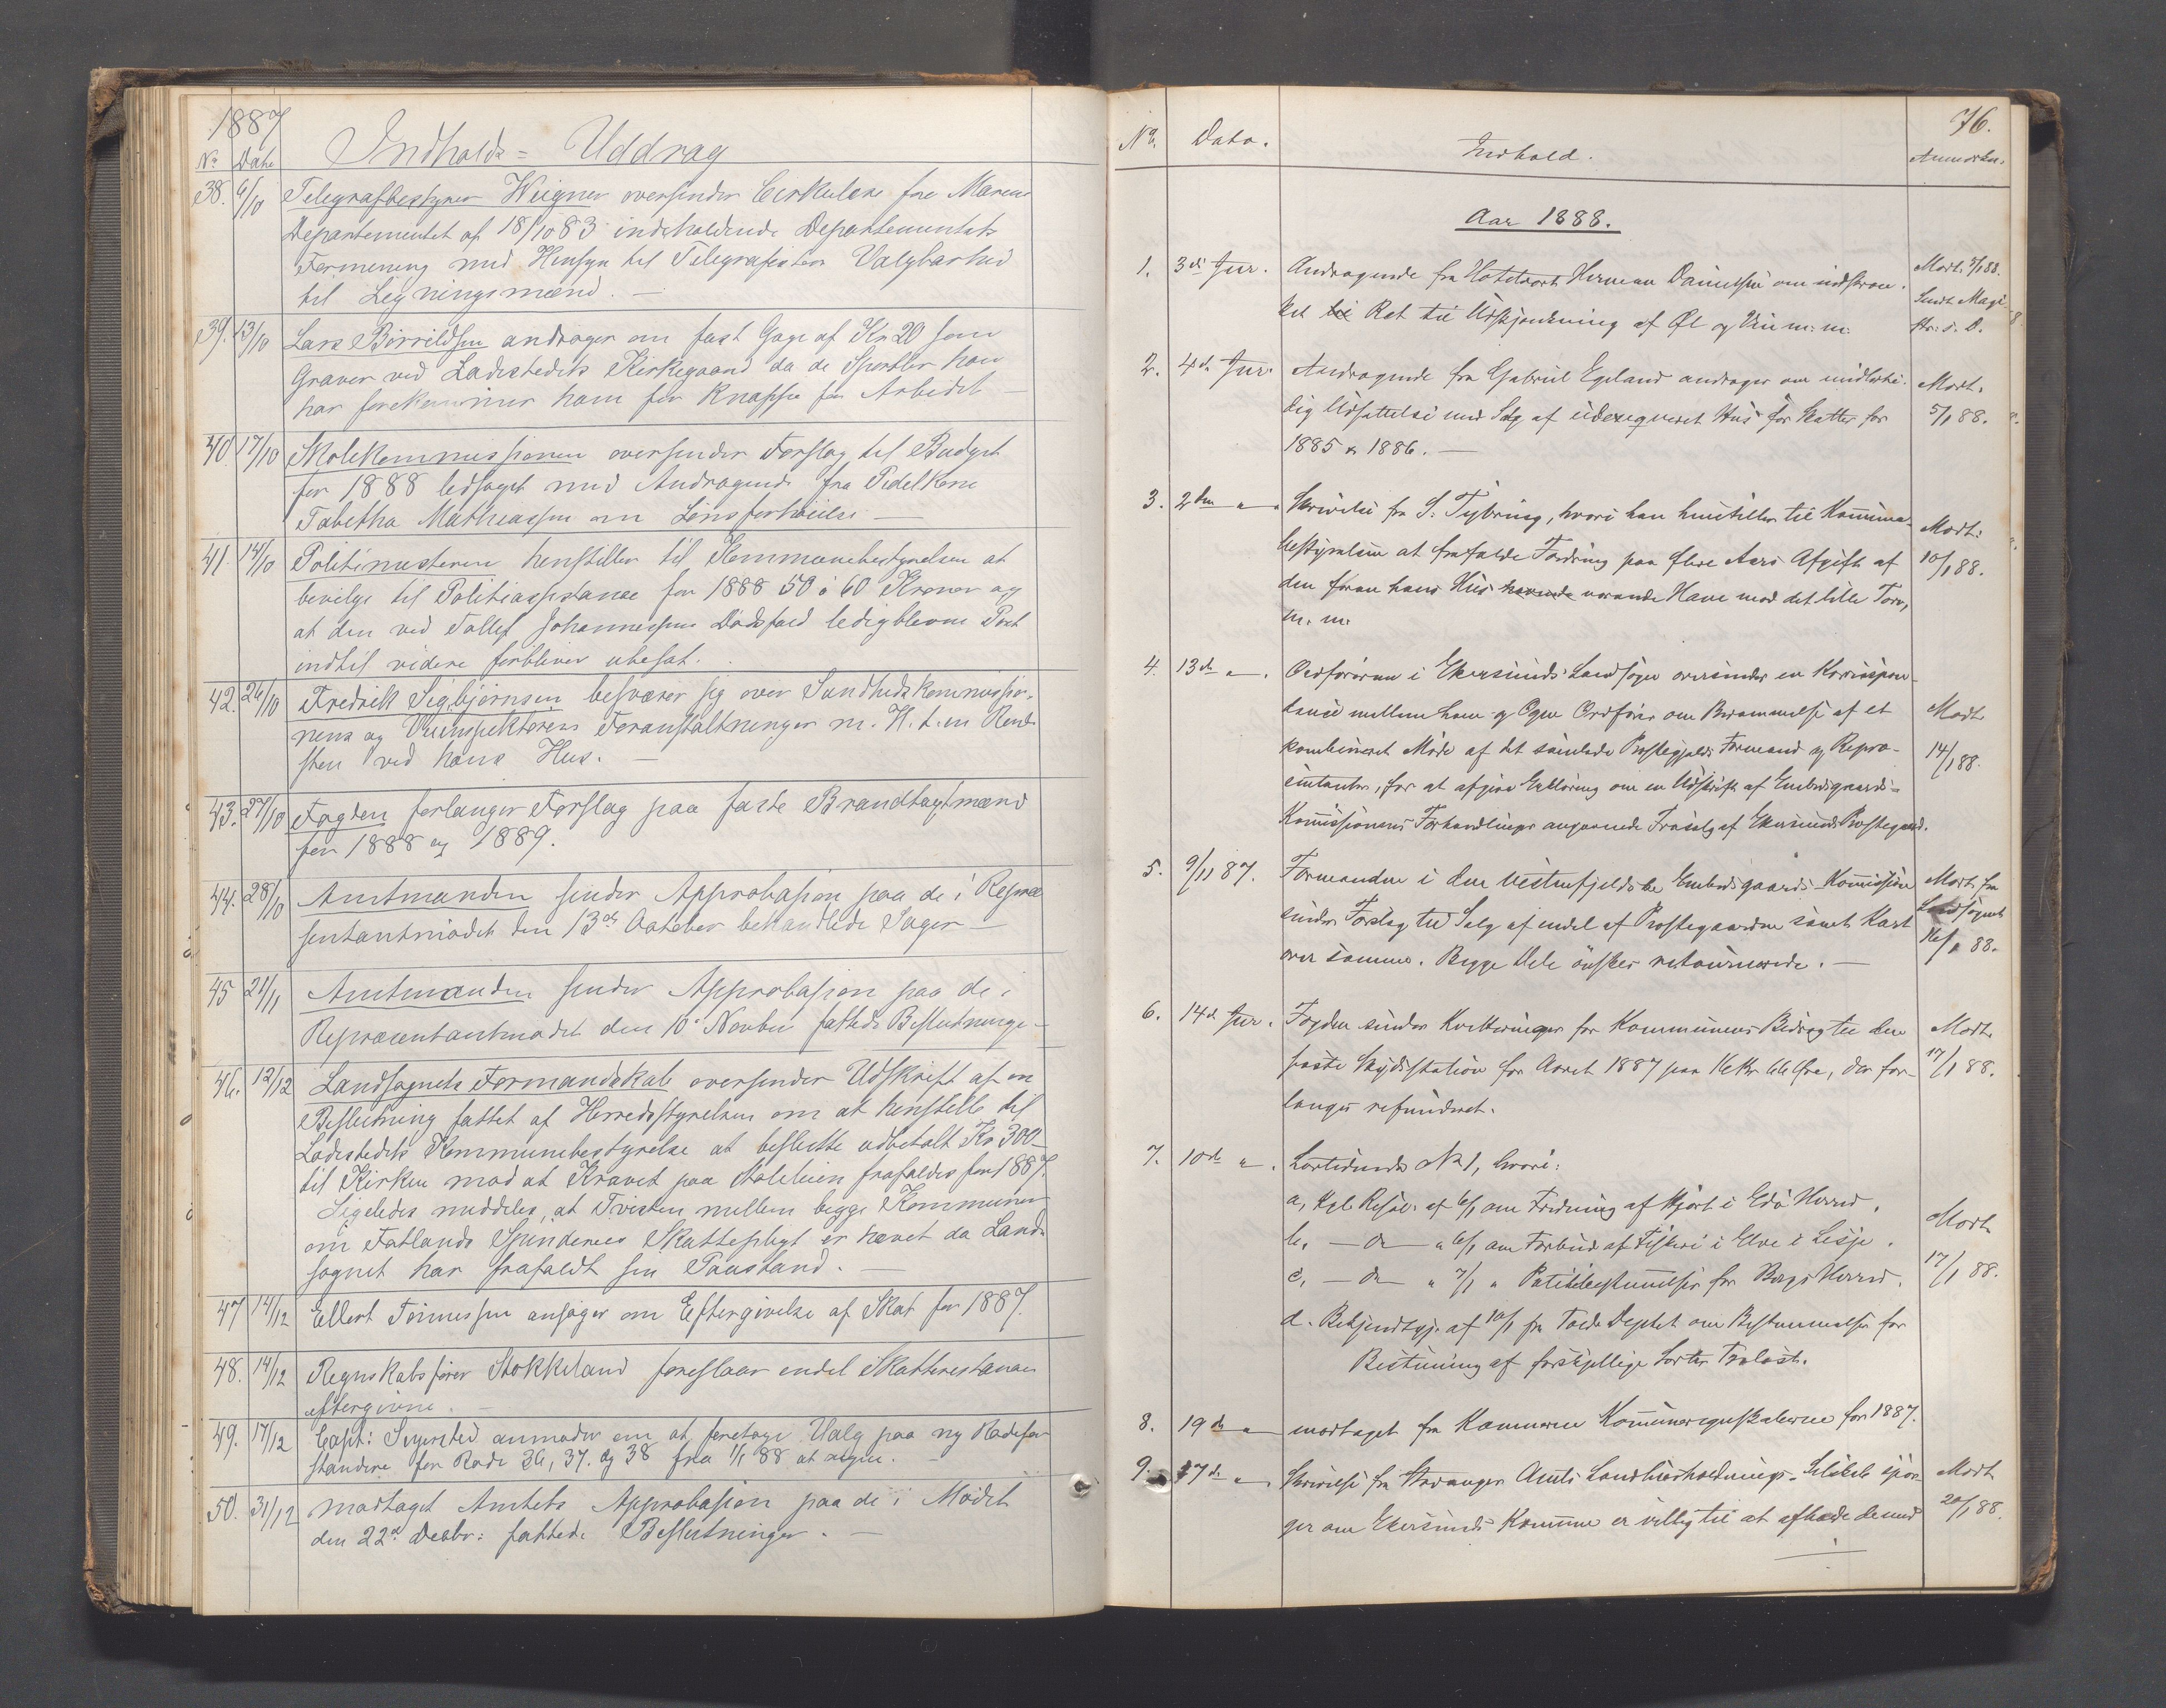 1887
No Date Indholds= Uddrag
38. 6/10 Telegrafbestyrer Wiigner oversender Cirkulære fra Marine
Departementet af 18/10 83 indeholdende Departementets
Formening med Hensyn til Telegrafisters Valgbarhed
til Ligningsmænd. —
39. 13/10 Lars Birrildsen andrager om fast Gage af Kr 20 som
Graver ved Ladestedets Kirkegaard da de Sportler han
har forekommer ham for knappe for Arbeidet —
40. 17/10 Skolekommissionen oversender Forslag til Budget
for 1888 ledsaget med Andragende fra Pedelkone
Tabetha Mathiassen om Lønsforhøielse —
41. 14/10 Politimesteren henstiller til Kommunebestyrelsen at
bevilge til Politiassistance for 1888 50 à 60 Kroner og
at den ved Tollef Johannessens Dødsfald ledigblevne Post
indtil videre forbliver ubesat.
42. 26/10 Fredrik Sigbjørnsen besværer sig over Sundhedskommissio-
nens og Veiinspektørens Foranstaltninger m. H. t. en Rend-
sten ved hans Hus. —
43. 27/10 Fogden forlanger Forslag paa faste Brandtagtmænd
for 1888 og 1889.
44. 28/10 Amtmanden sender Approbasjon paa de i Repræ
sentantmødet den 13de October behandlede Sager —
45 21/11 Amtmanden sender Approbasjon paa de i
Repræsentantmødet den 10' Novbr fattede Beslutninge-
46. 12/12 Landsognets Formandskab oversender Udskrift af en
Beslutning fattet af Herredsstyrelsen om at henstille til
Ladestedets Kommunebestyrelse at beslutte udbetalt Kr 300—
til Kirken mod at Kravet paa Stoleleien frafaldes for 1887.
Ligeledes meddeles, at Tvisten mellem begge Kommuner
om Fatlands Spinderies Skattepligt er hævet da Land-
sognet har frafaldt sin Paastand. —
47 14/12 Ellert Tønnessen ansøger om Eftergivelse af Skat for 1887.
48. 14/12 Regnskabsfører Stokkeland foreslaar endel Skatterestancer
eftergivne. —
49. 17/12 Capt: Seyersted anmoder om at foretage Valg paa ny Rodefor
standere for Rode 36, 37. og 38 fra 1/1 88 at regne. —
50. 31/12 modtaget Amtets Approbasjon paa de i Mødet
den 22de Decbr: fattede Beslutninger. —
76.
No. Dato. Indhold. Anmærkn.
Aar 1888.
1. 3die Jnr. Andragende fra Hotelvært Herman Danielsen om indskræn- Modt. 3/1 88.
ket til Ret til Udskjænkning af Øl og Vin m: m: Sendt Magi-
str: s. D.
2. 4de Jnr. Andragende fra Gabriel Egeland andrager om midlerti- Modt.
dig Udsættelse med Salg af udexequeret Hus for Skatter for 5/1 88.
1885 & 1886. —
3. 2den " Skrivelse fra S. Tybring, hvori han henstiller til Kommune- Modt:
bestyrelsen at frafalde Fordring paa flere Aars Afgift af 10/1 88.
den foran hans Hus havende værende Have mod det lille Torv,
m. m.
4. 13de " Ordføreren i Ekersunds Landsogn oversender en Korrespon-
dance mellem ham og Ogne Ordfører om Berammelse af et Modt.
kombineret Møde af det samlede Præstegjelds Formænd og Repræ- 14/1 88.
sentanter, for at afgive Erklæring om en Udskrift af Embedsgaards-
Kommissionens Forhandlinger angaaende Frasalg af Ekersunds Præstegaard.
5. 9/11 87. Formanden i den Vestenfjeldske Embedsgaards-Kommission Modt. fra
sender Forslag til Salg af endel af Præstegaarden samt Kart Landsognet
over samme. Begge Dele ønskes retournerede. — 16/1 88.
6. 14de Jnr. Fogden sender Kvitteringer for Kommunens Bidrag til den Modt.
faste Skydsstation for Aaret 1887 paa 16 Kr 66 Øre, der for- 17/1 88.
langes refunderet.
7. 10de " Lovtidende No 1, hvori:
a, Kgl. Resol. af 6/1 om Fredning af Hjort i Edø Herred.
b, — do — " 6/1 om Forbud af Fiskeri i Elve i Lesje. Modt
c, — do — " 7/1 " Politibestemmelser for Bergs Herred. 17/1 88.
d. Bekjendtgj. af 10/1 fra Told-Deptet om Bestemmelser for
Bestemning af forskjellige Sorter Trælast.
8. 19de " modtaget fra Kæmneren Kommuneregnskaberne for 1887.
9. 17de " Skrivelse fra Stavanger Amts Landhusholdnings-Selskab spør- Modt
ger om Ekersunds Kommune er villig til at afholde de med 20/1 88.